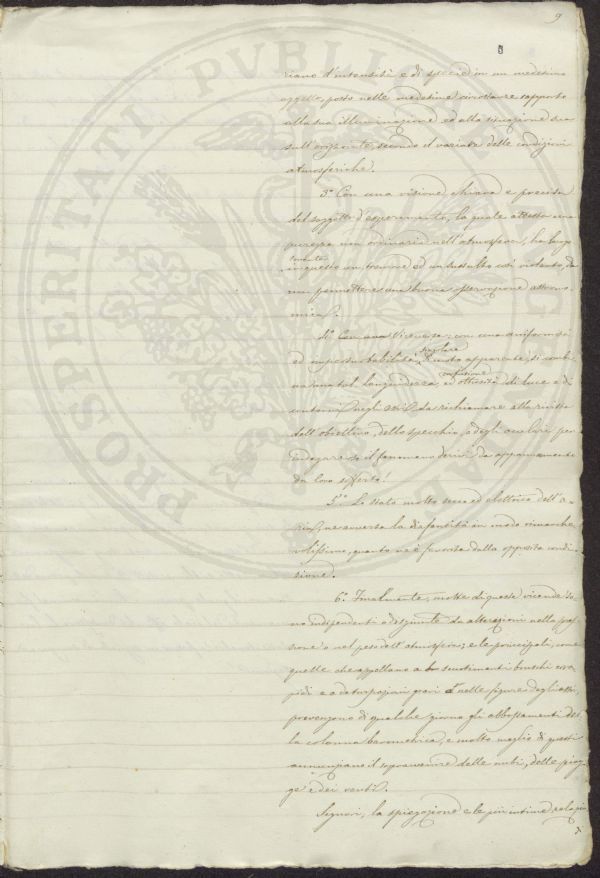 9
riano d'intensità e di specie in un medesimo
oggetto, posto nelle medesime circostanze rapporto
alla sua illuminazione ed alla situazione sua
sull'orizzonte, secondo il variare delle condizioni
atmosferiche.
3.° Con una visione chiara e precisa
del soggetto d'esperimento, la quale attesta una
purezza non ordinaria nell'atmosfera, ha luogo
in questo un tremore ed un sussulto così violento, da
non permettere una buona osservazione astrono-
mica.
4.° Con una viceversa; con una uniformità
ed imperturbabilità singolare apparente, si combi-
nano tal languidezza, confusione ed ottusità di luce e di
contorni negli astri, da richiamare alla visita
dell'obiettivo, dello specchio, o degli oculari per
indagare se il fenomeno derivi da appannamento
da loro sofferto.
5.° Lo stato molto secco ed elettrico dell'a-
ria, ne avversa la diafanità in modo rimarche-
volissimo, quanto ne è favorita dalla opposta condi-
zione.
6.° Finalmente, molte di queste vicende so-
no indipendenti o disgiunte da alterazioni nella pres-
sione o nel peso dell'atmosfera; e le principali, come
quelle che appellano a scuotimenti bruschi e ra-
pidi e a deturpazioni gravi nelle figure degli astri,
prevengono di qualche giorno gli abbassamenti del-
la colonna barometrica, e molto meglio di questi
annunziano il sopravvenire delle nubi, delle piog-
ge e dei venti.
Signori, la spiegazione e le più intime relazio-
PROSPERITATI PVBLICAE AVGENDAE